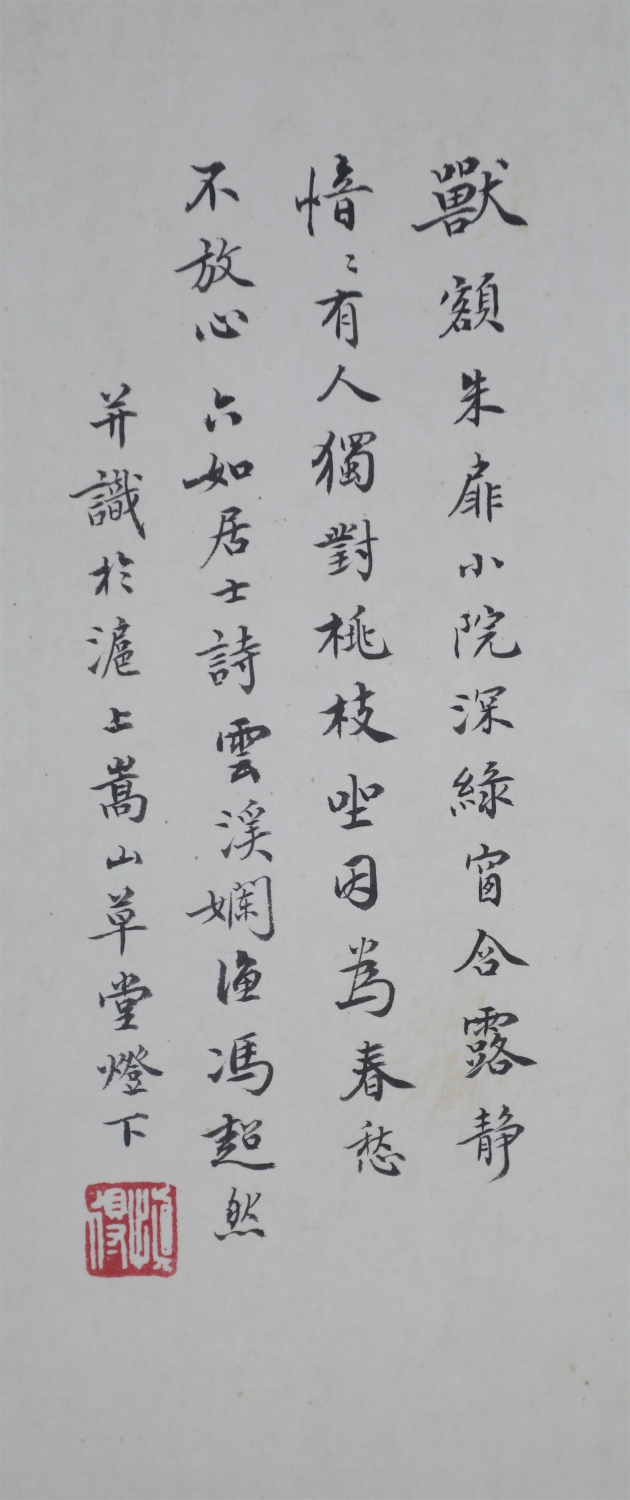 獸額朱扉小院深綠窗含露靜
愔〻有人獨對桃枝坐因為春愁
不放心 六如居士詩雲溪嬾漁馮超然
并識於滬上嵩山草堂燈下